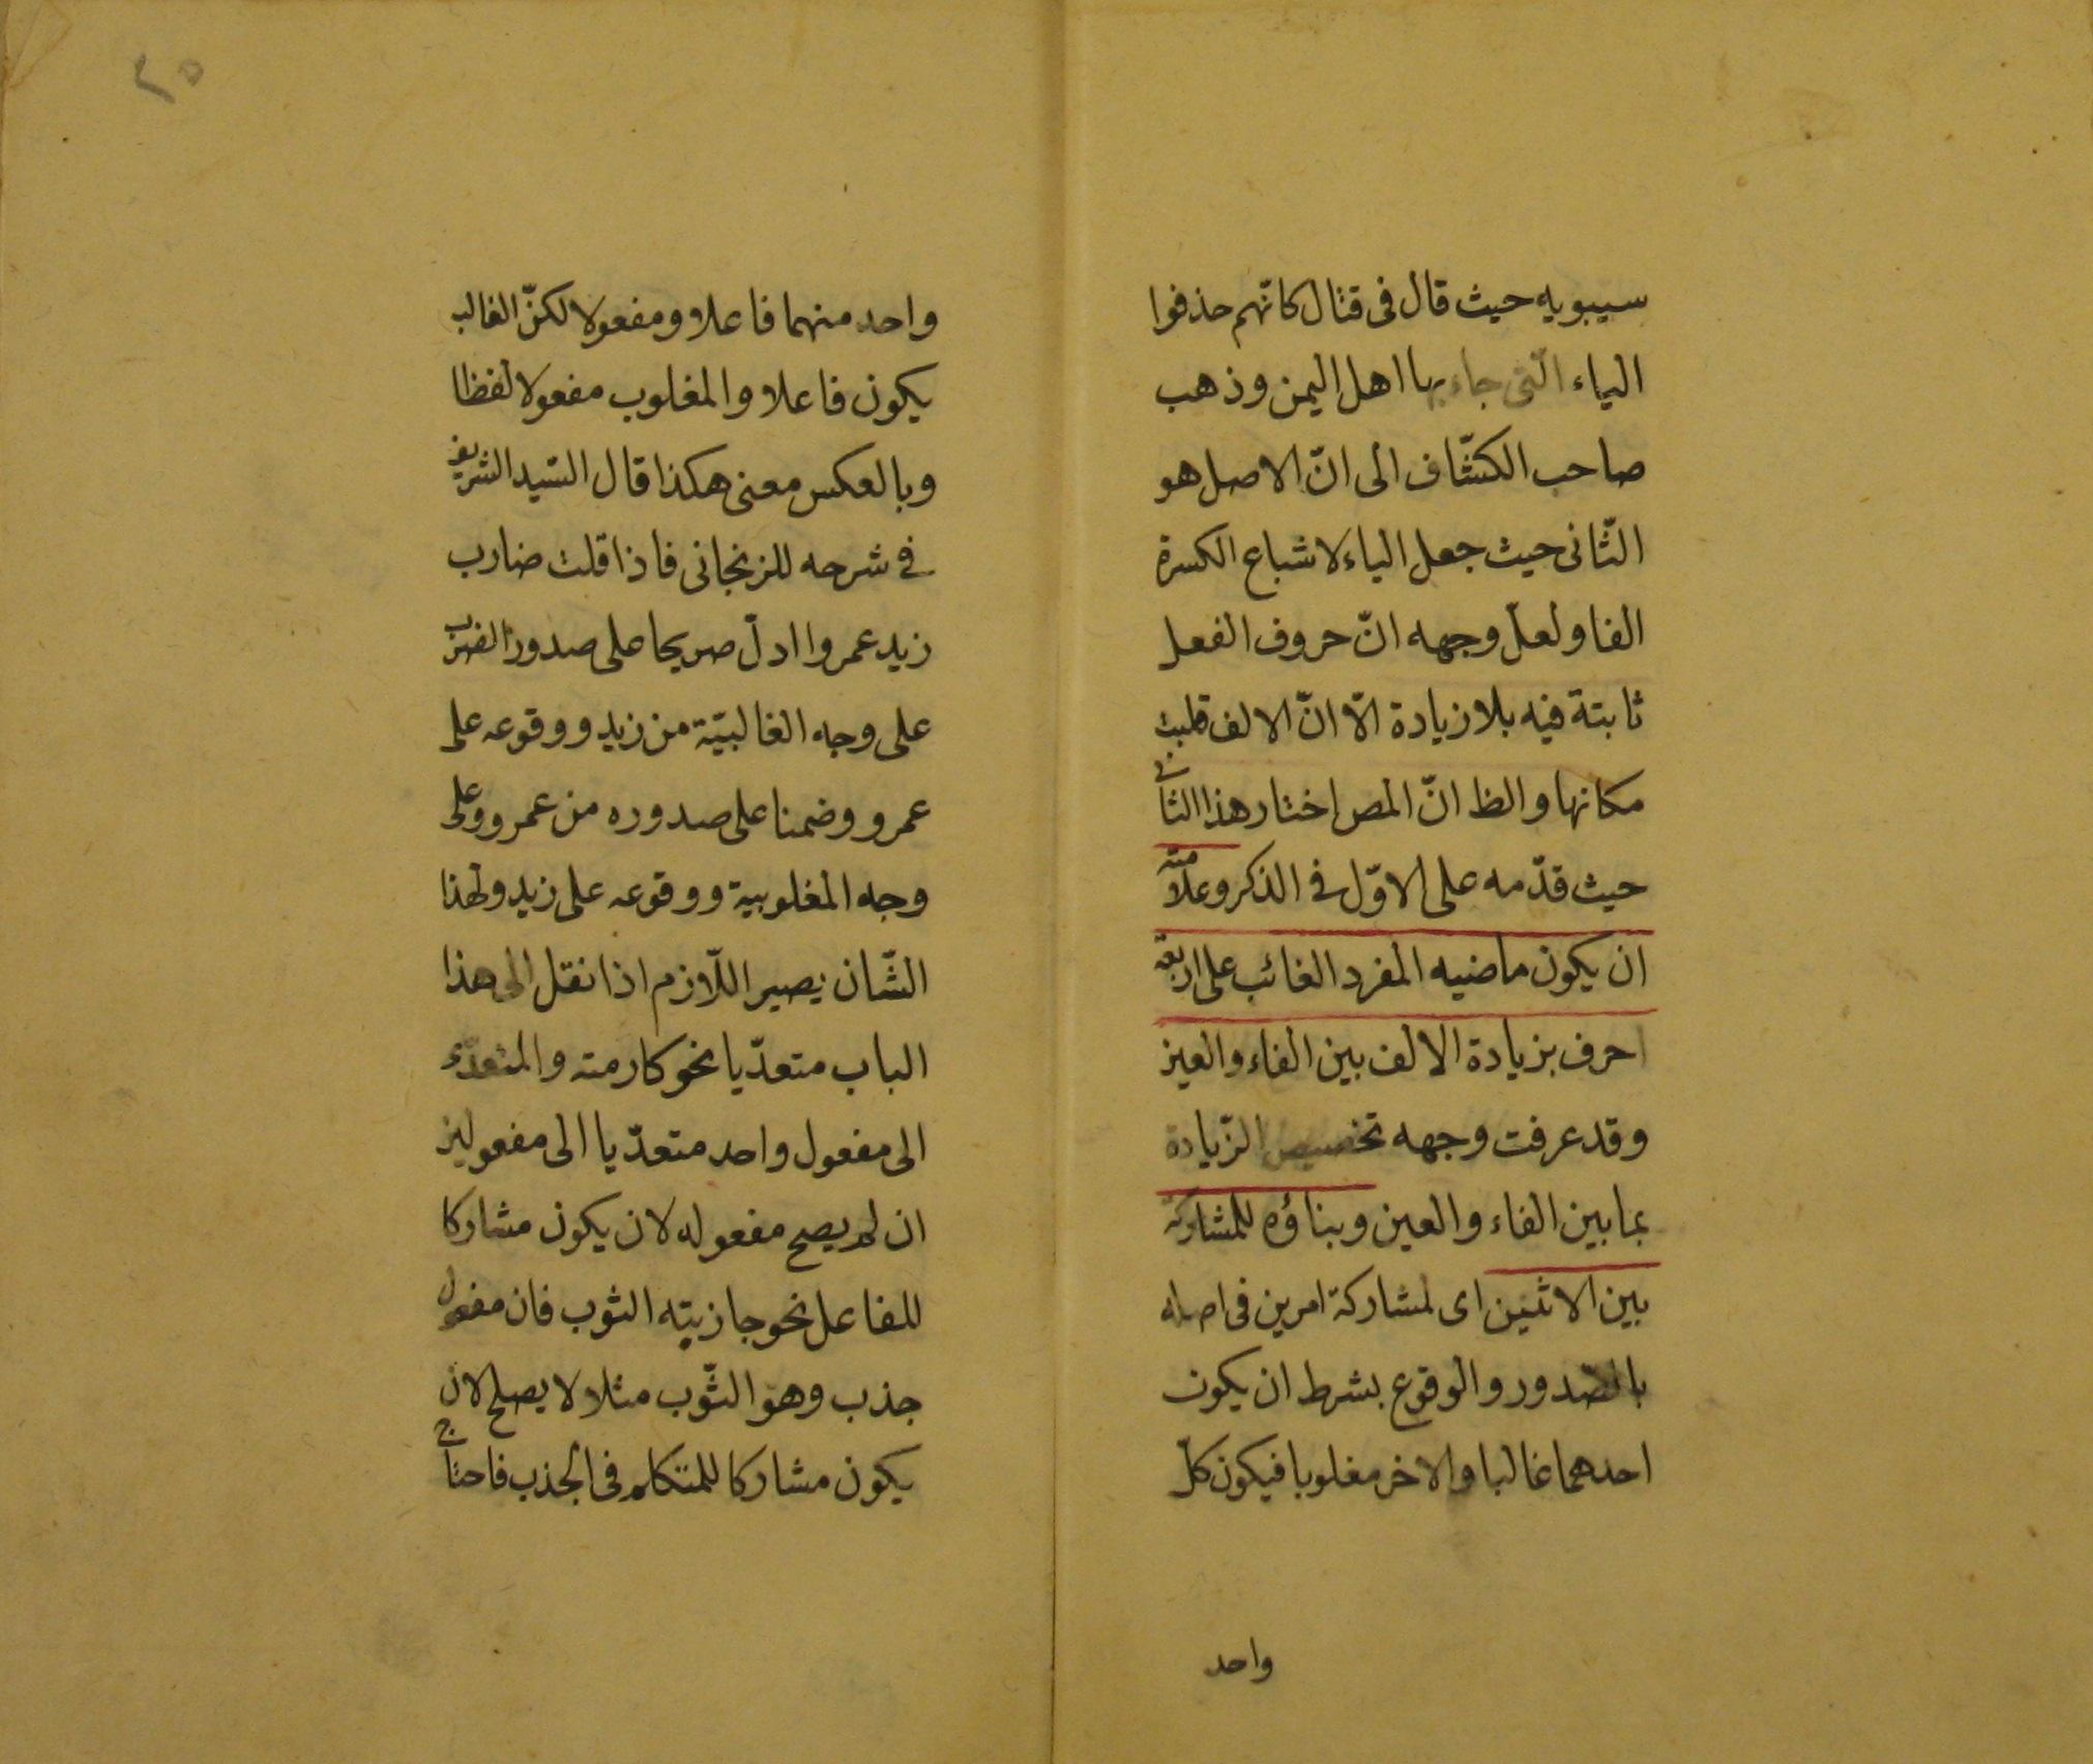 سيبويه حيث قال فى قتال كانّهم حذفوا
الياء الّتى جاء بها اهل اليمن وذهب
صاحب الكشّاف الى انّ الاصل هو
الثّانى حيث جعل الياء لاشباع الكسرة
الفا ولعلّ وجهه انّ حروف الفعل
ثابتة فيه بلا زيادة الّا انّ الالف قلبت
مكانها والظ انّ المص اختار هذا الثانى
حيث قدّمه على الاوّل فى الذكر وعلامته
ان يكون ماضيه المفرد الغائب على اربعة
احرف بزيادة الالف بين الفاء والعين
وقد عرفت وجهه تخصيص الزّيادة
بما بين الفاء والعين وبناؤه للمشاركة
بين الاثنين اى لمشاركة امرين فى اصله
بالصّدور والوقوع بشرط ان يكون
احدهما غالبا والاخر مغلوبا فيكون كلّ
واحد
٢٥
واحد منهما فاعلا ومفعولا لكنّ الغالب
يكون فاعلا والمغلوب مفعولا لفظا
وبالعكس معنى هكذا قال السّيد الشريف
فى شرحه للزنجانى فاذا قلت ضارب
زيد عمروا ادلّ صريحا على صدور الضرب
على وجه الغالبيّة من زيد ووقوعه على
عمرو وضمنا على صدوره من عمرو وعلى
وجه المغلوبية ووقوعه على زيد ولهذا
الشّان يصير اللّازم اذا نقل الى هذا
الباب متعدّيا نحو كارمته والمتعدّى
الى مفعول واحد متعدّيا الى مفعولين
ان لم يصح مفعوله لان يكون مشاركا
للفاعل نحو جازبته الثوب فان مفعول
جذب وهو الثّوب مثلا لا يصلح لان
يكون مشاركا للمتكلم فى الجذب فاحتاج